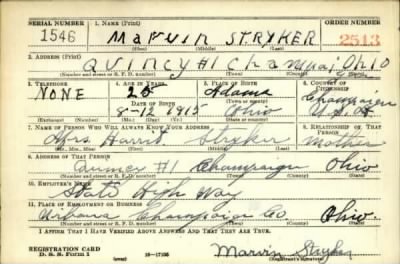 SERIAL NUMBER 1. NAME (Print) ORDER NUMBER
1546 Marvin STRYKER 2513
(First) (Middle) (Last)
2. ADDRESS (Print)
QUINCY #1 Champaign Ohio
(Number and street or R. F. D. number) (Town) (County) (State)
3. TELEPHONE 4. AGE IN YEARS 5. PLACE OF BIRTH 6. COUNTRY OF CITIZENSHIP
NONE 25 Adams Champaign
DATE OF BIRTH (Town or county)
8-12 1915 Ohio U.S.A.
(Mo.) (Day) (Yr.) (State or country)
7. NAME OF PERSON WHO WILL ALWAYS KNOW YOUR ADDRESS 8. RELATIONSHIP OF THAT PERSON
Mrs. Stryker Mother
(Mr., Mrs., Miss) (First) (Middle) (Last)
9. ADDRESS OF THAT PERSON
Quincy #1 Champaign Ohio
(Number and street or R. F. D. number) (Town) (County) (State)
10. EMPLOYER'S NAME
State High Way
11. PLACE OF EMPLOYMENT OR BUSINESS
Urbana Champaign Co Ohio.
(Number and street or R. F. D. number) (Town) (County) (State)
I AFFIRM THAT I HAVE VERIFIED ABOVE ANSWERS AND THAT THEY ARE TRUE.
REGISTRATION CARD
D. S. S. Form 1 16-17105 (over) Marvin Stryker
(Registrant's signature)